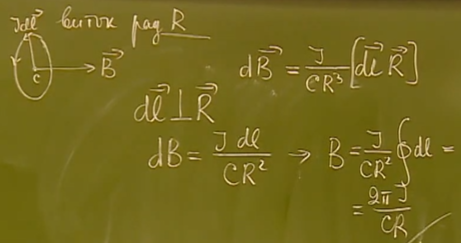 Jdl⃗ виток рад R
C B⃗
dB⃗ = J/CR³ [dl⃗ R⃗]
dl⃗ ⊥ R⃗
dB = J dl/CR² → B = J/CR² ∮ dl =
= 2π J/CR